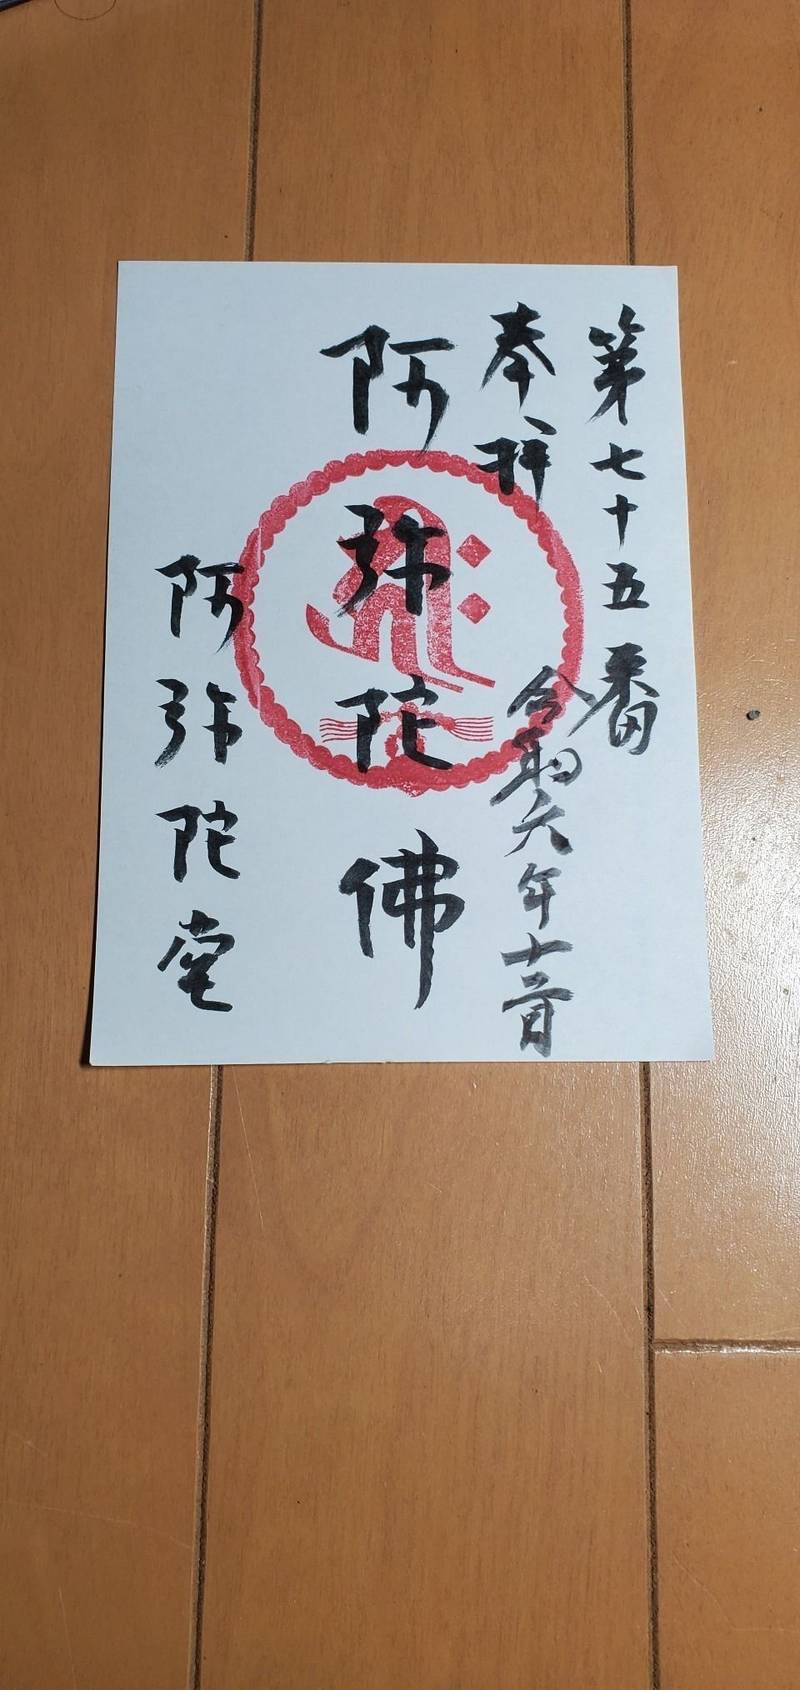 第七十五番
奉拝
令和六年十二月
阿弥陀佛
阿弥陀堂